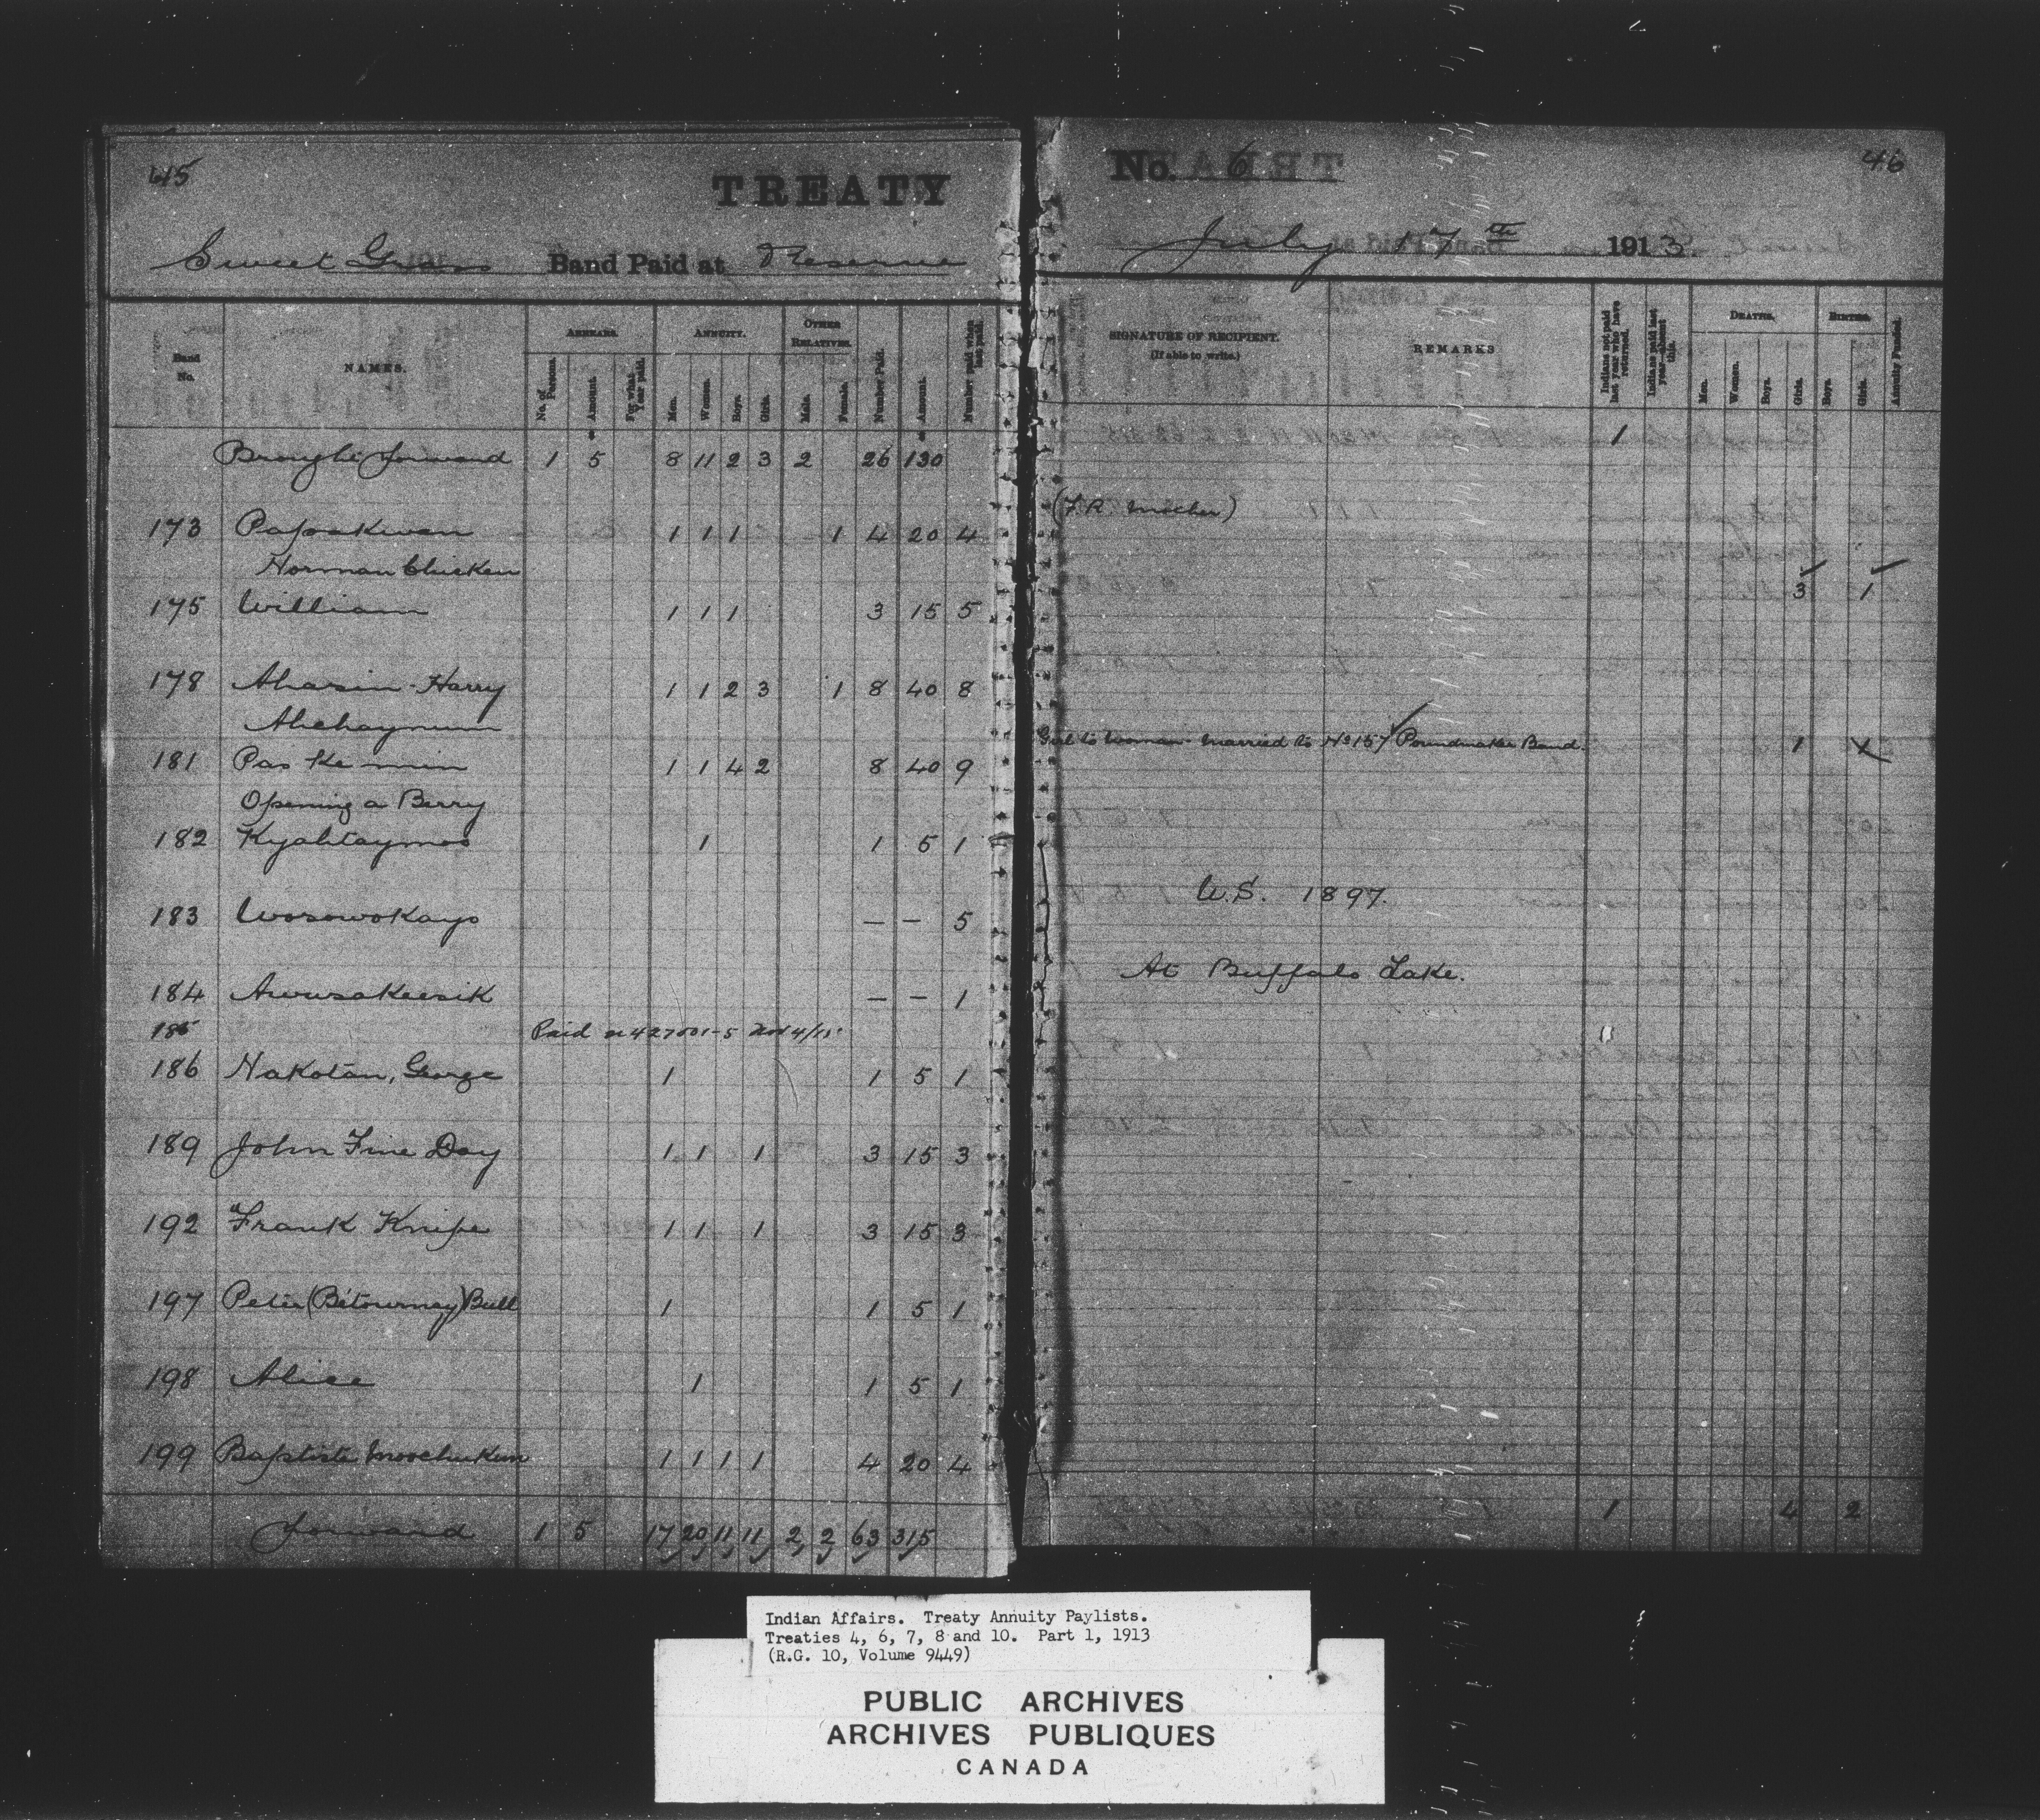 45
TREATY
No. 6
46
Sweet Grass Band Paid at Reserve
July 17th 1913.
Band No.
NAMES.
ARREARS.
No. of Persons
Amount.
For what Year paid.
ANNUITY.
Men.
Women.
Boys.
Girls.
OTHER RELATIVES.
Male.
Female.
Number Paid.
Amount.
Number paid when last paid.
SIGNATURE OF RECIPIENT.
(If able to write.)
REMARKS
Indians not paid last year who have returned.
Indians paid last year—absent this.
DEATHS.
Men.
Women.
Boys.
Girls.
BIRTHS.
Boys.
Girls.
Annuity Funded.
Brought forward 1 5 8 11 2 3 2 26 130 1
173 Papaskwan 1 1 1 1 4 20 4 (F.R. Mother)
Norman Chicken
175 William 1 1 1 3 15 5 3 1
178 Ahasin Harry 1 1 2 3 1 8 40 8
Ahchaynum
181 Pas Ke min 1 1 4 2 8 40 9 Girl to Woman - Married to No 157 Poundmaker Band. 1 X
Opening a Berry
182 Kyahtaymos 1 1 5 1
183 Wosowokayo — — 5 U.S. 1897.
184 Awusakeesik — — 1 At Buffalo Lake.
185 Paid
186 Nakotan, George 1 1 5 1
189 John Fine Day 1 1 1 3 15 3
192 Frank Knife 1 1 1 3 15 3
197 Peter (Betourney) Bull 1 1 5 1
198 Alice 1 1 5 1
199 Baptiste Moochukun 1 1 1 1 4 20 4
forward 1 5 17 20 11 11 2 2 63 315 1 4 2
Indian Affairs. Treaty Annuity Paylists.
Treaties 4, 6, 7, 8 and 10. Part 1, 1913
(R.G. 10, Volume 9449)
PUBLIC ARCHIVES
ARCHIVES PUBLIQUES
CANADA